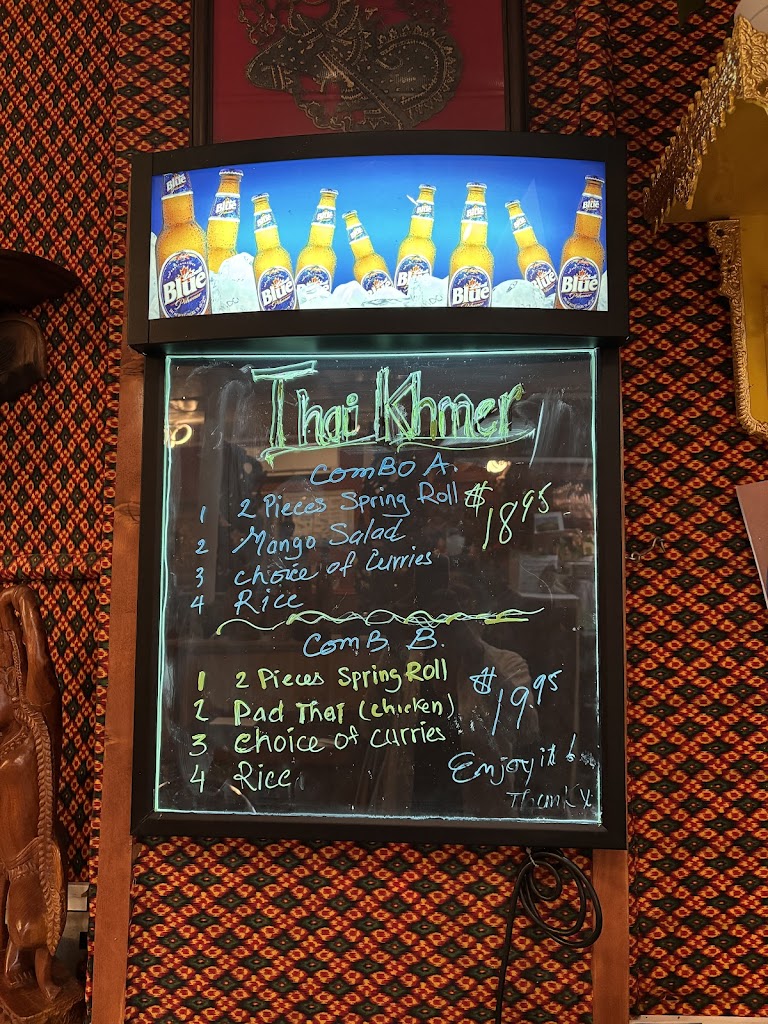 Blue Blue Blue Blue Blue Blue Blue
Thai Khmer
COMBO A.
1 2 Pieces Spring Roll $18.95
2 Mango Salad
3 choice of Curries
4 Rice
COMB B.
1 2 Pieces Spring Roll $19.95
2 Pad Thai (chicken)
3 choice of curries
4 Rice
Enjoy it
Thank